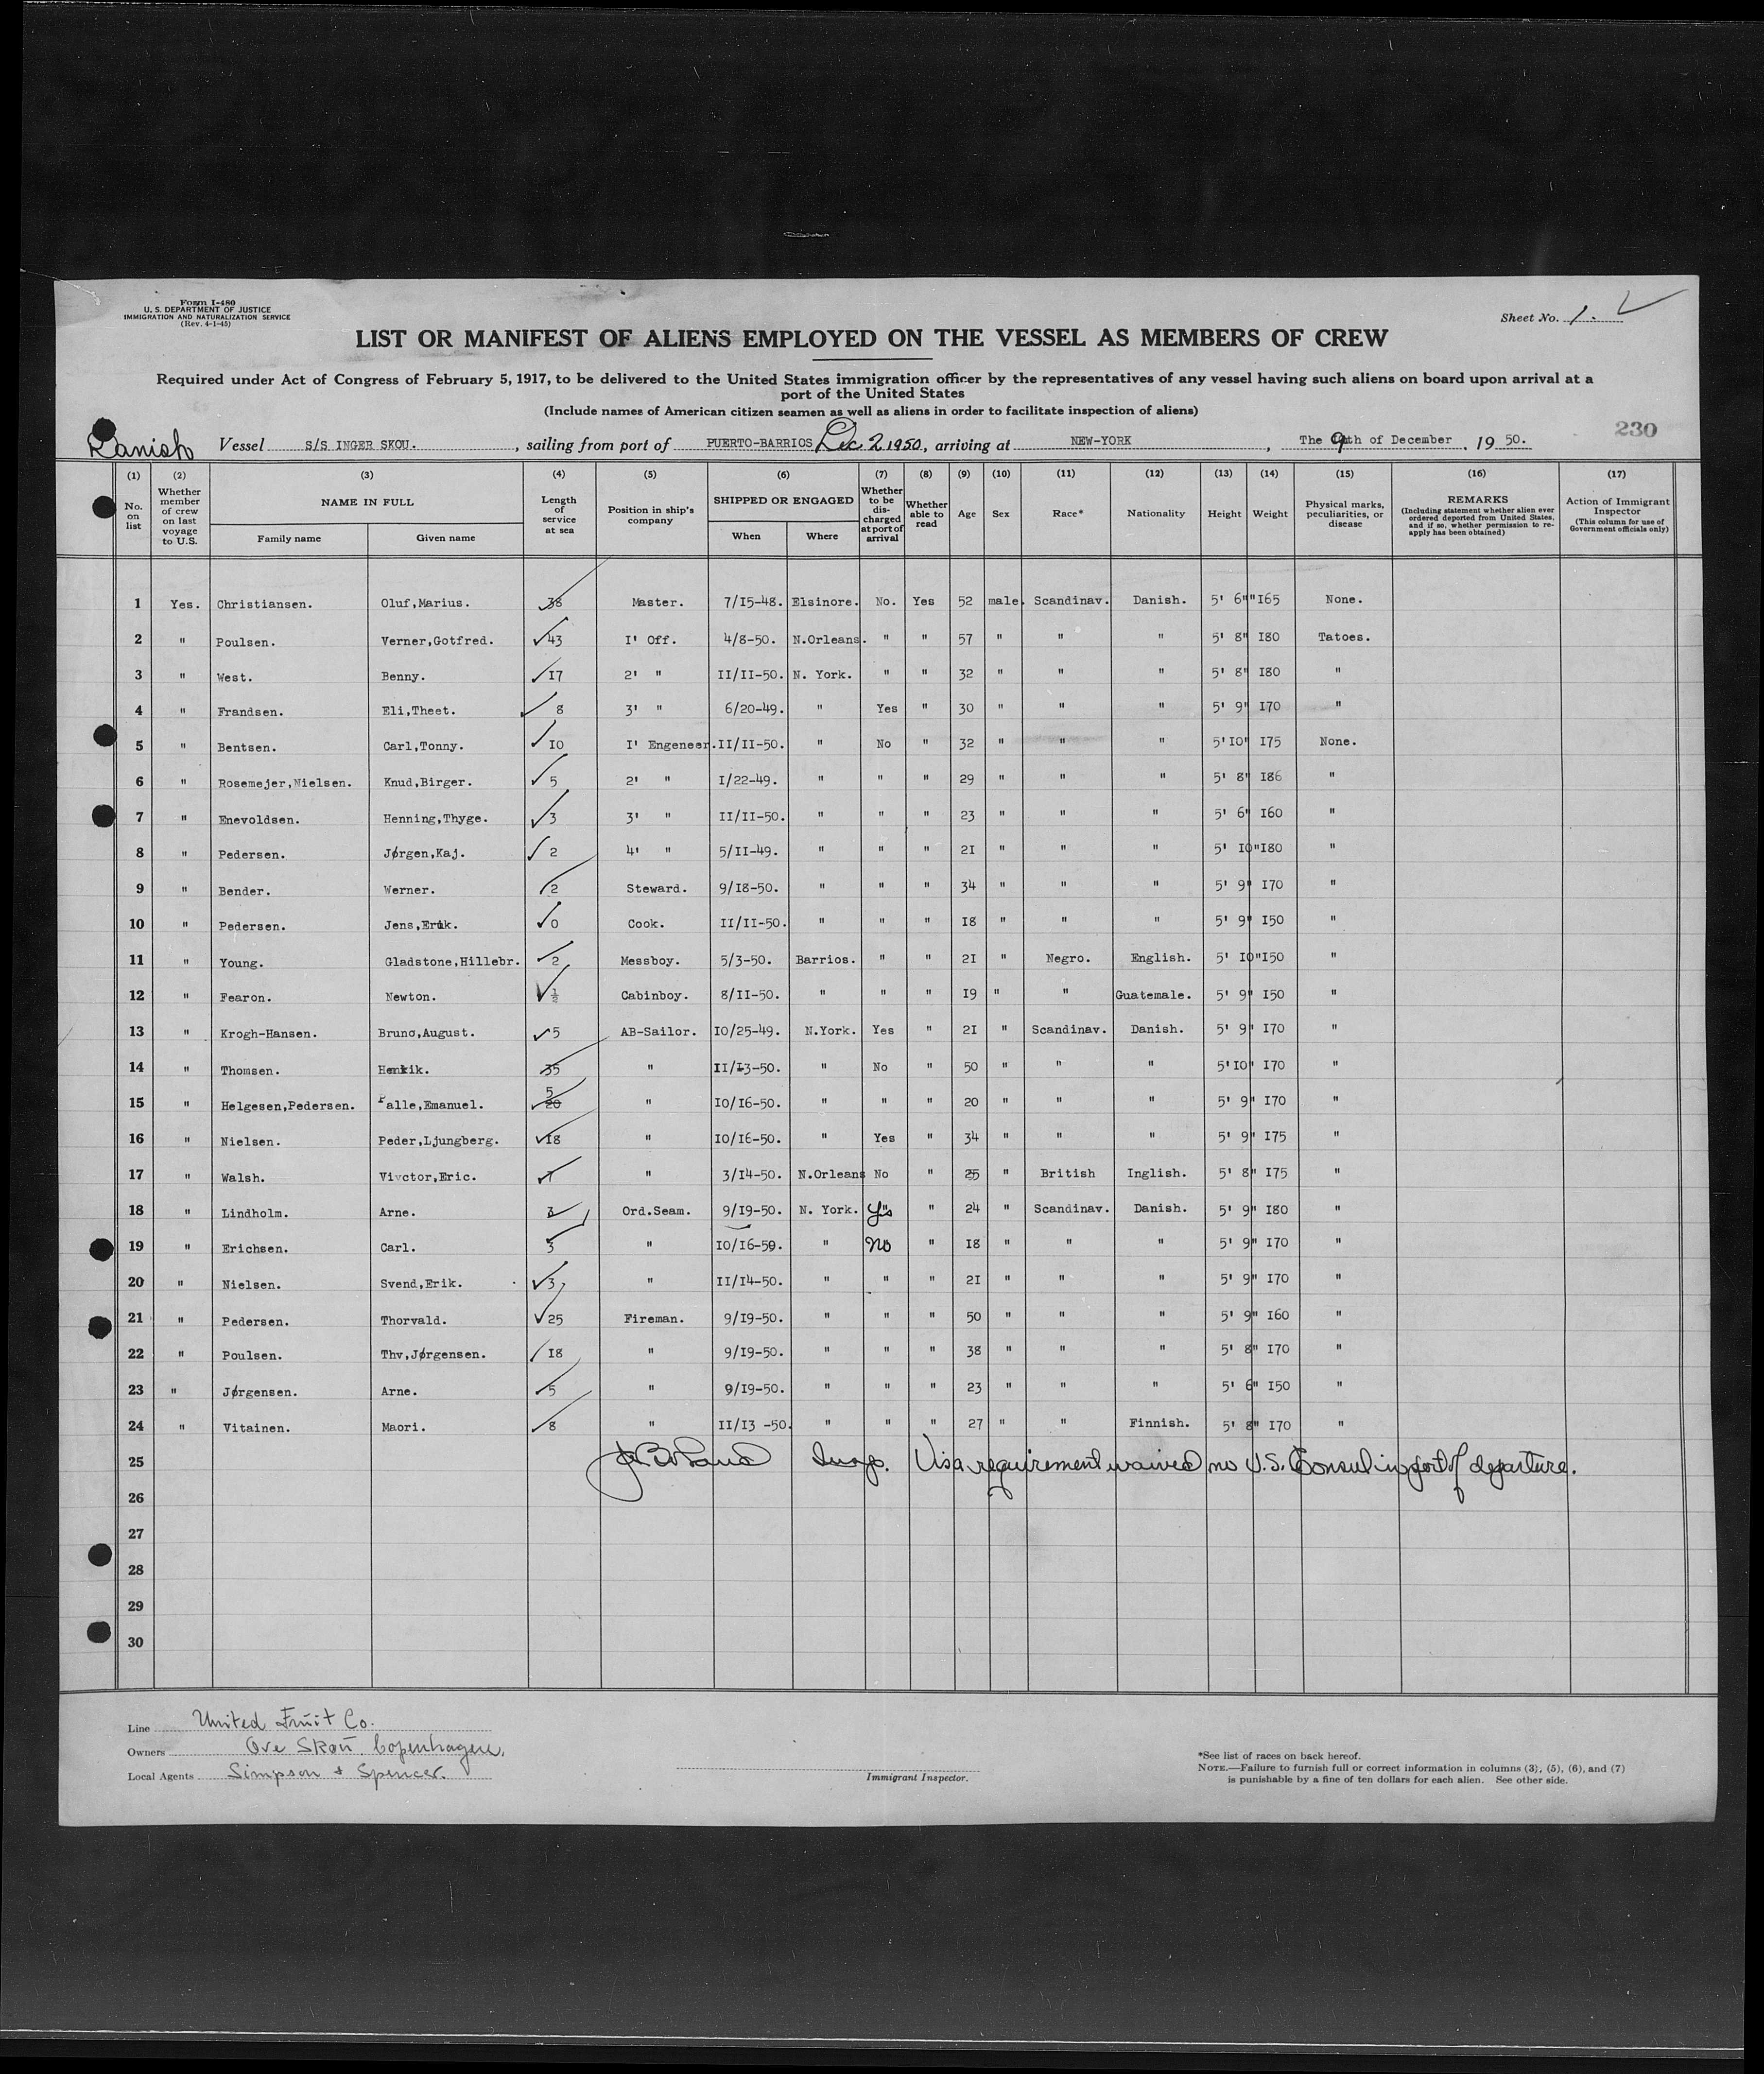 Form I-480
U. S. DEPARTMENT OF JUSTICE
IMMIGRATION AND NATURALIZATION SERVICE
(Rev. 4-1-45)
Sheet No. 1.
LIST OR MANIFEST OF ALIENS EMPLOYED ON THE VESSEL AS MEMBERS OF CREW
Required under Act of Congress of February 5, 1917, to be delivered to the United States immigration officer by the representatives of any vessel having such aliens on board upon arrival at a
port of the United States
(Include names of American citizen seamen as well as aliens in order to facilitate inspection of aliens)
230
Danish Vessel S/S INGER SKOU. , sailing from port of PUERTO-BARRIOS Dec 2 1950, arriving at NEW-YORK , The 9th of December , 19 50.
(1) (2) (3) (4) (5) (6) (7) (8) (9) (10) (11) (12) (13) (14) (15) (16) (17)
No. on list Whether member of crew on last voyage to U.S. NAME IN FULL Family name Given name Length of service at sea Position in ship's company SHIPPED OR ENGAGED When Where Whether to be discharged at port of arrival Whether able to read Age Sex Race* Nationality Height Weight Physical marks, peculiarities, or disease REMARKS (Including statement whether alien ever ordered deported from United States, and if so, whether permission to re-apply has been obtained) Action of Immigrant Inspector (This column for use of Government officials only)
1 Yes. Christiansen. Oluf,Marius. 38 Master. 7/15-48. Elsinore. No. Yes 52 male. Scandinav. Danish. 5' 6" "I65 None.
2 " Poulsen. Verner,Gotfred. 43 I' Off. 4/8-50. N.Orleans. " " 57 " " " 5' 8" I80 Tatoes.
3 " West. Benny. I7 2' " II/II-50. N. York. " " 32 " " " 5' 8" I80 "
4 " Frandsen. Eli,Theet. 8 3' " 6/20-49. " Yes " 30 " " " 5' 9" I70 "
5 " Bentsen. Carl,Tonny. I0 I' Engeneer. II/II-50. " No " 32 " " " 5'I0" I75 None.
6 " Rosemejer,Nielsen. Knud,Birger. 5 2' " I/22-49. " " " 29 " " " 5' 8" I86 "
7 " Enevoldsen. Henning,Thyge. 3 3' " II/II-50. " " " 23 " " " 5' 6" I60 "
8 " Pedersen. Jørgen,Kaj. 2 4' " 5/II-49. " " " 2I " " " 5' I0" I80 "
9 " Bender. Werner. 2 Steward. 9/I8-50. " " " 34 " " " 5' 9" I70 "
10 " Pedersen. Jens,Erik. 0 Cook. II/II-50. " " " I8 " " " 5' 9" I50 "
11 " Young. Gladstone,Hillebr. 2 Messboy. 5/3-50. Barrios. " " 2I " Negro. English. 5' I0" I50 "
12 " Fearon. Newton. ½ Cabinboy. 8/II-50. " " " I9 " " Guatemale. 5' 9" I50 "
13 " Krogh-Hansen. Bruno,August. 5 AB-Sailor. I0/25-49. N.York. Yes " 2I " Scandinav. Danish. 5' 9" I70 "
14 " Thomsen. Henrik. 35 " II/I3-50. " No " 50 " " " 5'I0" I70 "
15 " Helgesen,Pedersen. Palle,Emanuel. 5 20 " I0/I6-50. " " " 20 " " " 5' 9" I70 "
16 " Nielsen. Peder,Ljungberg. I8 " I0/I6-50. " Yes " 34 " " " 5' 9" I75 "
17 " Walsh. Vivctor,Eric. 7 " 3/I4-50. N.Orleans No " 25 " British Inglish. 5' 8" I75 "
18 " Lindholm. Arne. 3 Ord.Seam. 9/I9-50. N. York. Yes " 24 " Scandinav. Danish. 5' 9" I80 "
19 " Erichsen. Carl. 3 " I0/I6-50. " No " I8 " " " 5' 9" I70 "
20 " Nielsen. Svend,Erik. 3 " II/I4-50. " " " 2I " " " 5' 9" I70 "
21 " Pedersen. Thorvald. 25 Fireman. 9/I9-50. " " " 50 " " " 5' 9" I60 "
22 " Poulsen. Thv,Jørgensen. I8 " 9/I9-50. " " " 38 " " " 5' 8" I70 "
23 " Jørgensen. Arne. 5 " 9/I9-50. " " " 23 " " " 5' 6" I50 "
24 " Vitainen. Maori. 8 " II/I3 -50. " " " 27 " " Finnish. 5' 8" I70 "
25 Insp. Visa requirement waived no U.S. Consul in port of departure.
26
27
28
29
30
Line United Fruit Co.
Owners Ove Skou, Copenhagen.
Local Agents Simpson + Spencer.
Immigrant Inspector.
*See list of races on back hereof.
NOTE.—Failure to furnish full or correct information in columns (3), (5), (6), and (7)
is punishable by a fine of ten dollars for each alien. See other side.